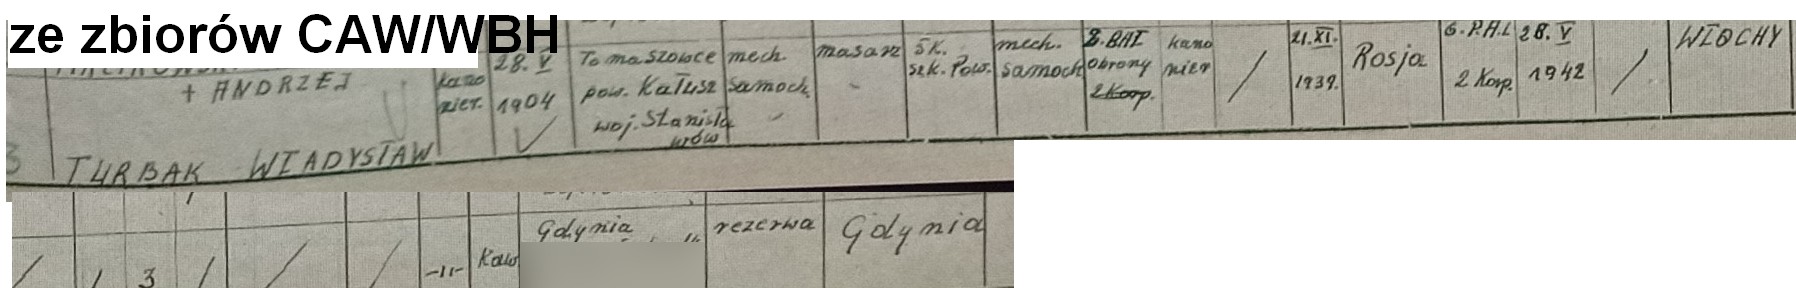 ze zbiorów CAW/WBH
+ ANDRZEJ
TURBAK WŁADYSŁAW
kano
nier.
28. V
1904
Tomaszowce
pow. Kałusz
woj. Stanisła
wów
mech.
samoch.
masarz
szk. Pow.
mech.
samoch
BAT
obrony
2 Korp.
kano
nier
/
21. XI.
1939.
Rosja
6. P.A.L
2 Korp.
28. V
1942
/
WŁOCHY
/ / 3 / / / -11- Kaw
Gdynia
rezerwa
Gdynia